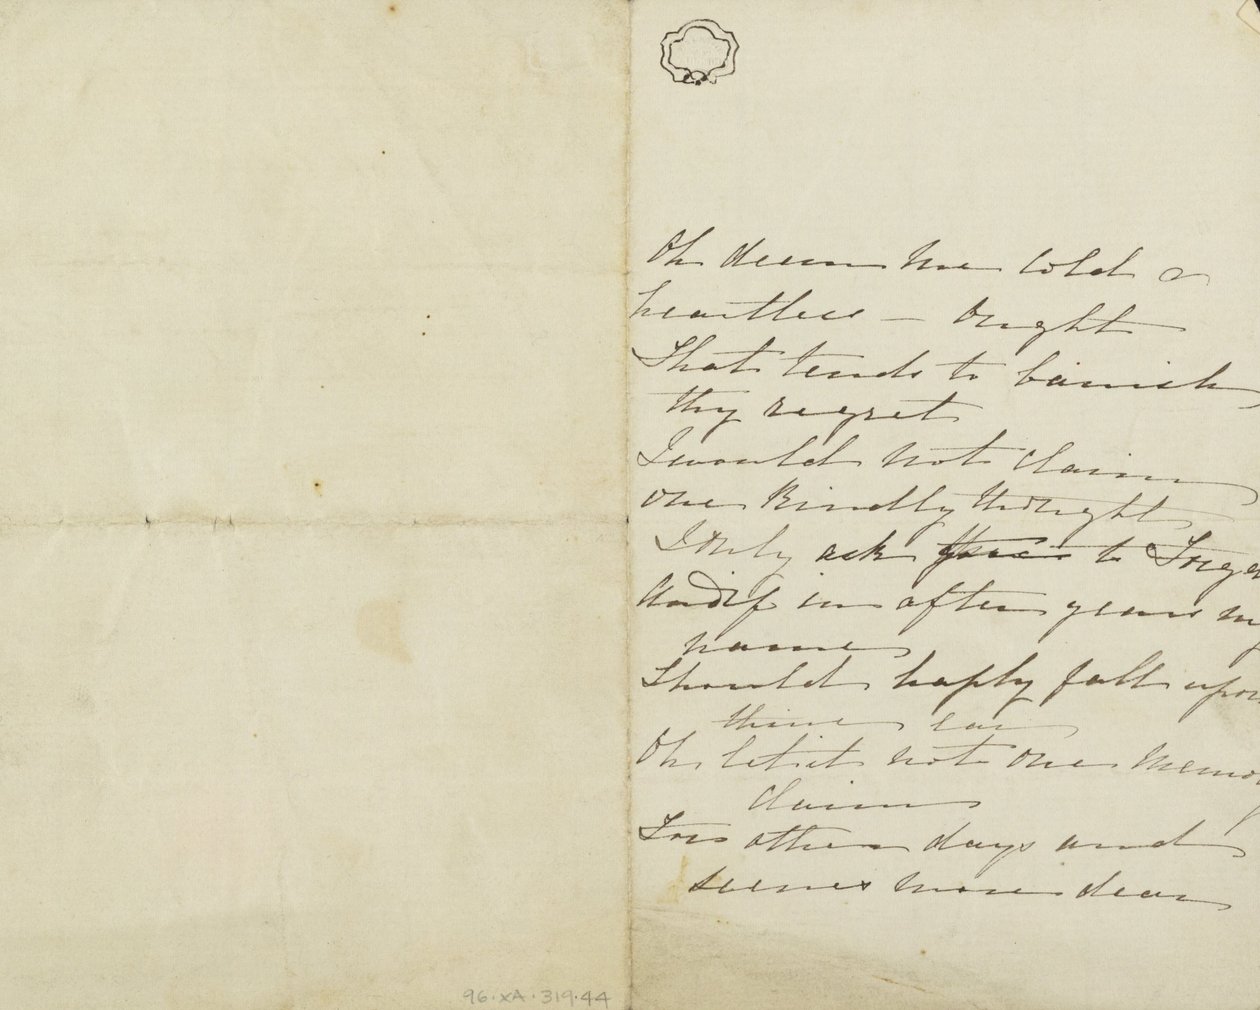 Oh deem me cold &
heartless — ought
That tends to banish
thy regret
I would not claim
one Kindly thought
I only ask thee to Forget
And if in after years my
name
Should haply fall upon
thine ear
Oh let it not one memory
claim
From other days and
scenes more dear
96.XA.319.44